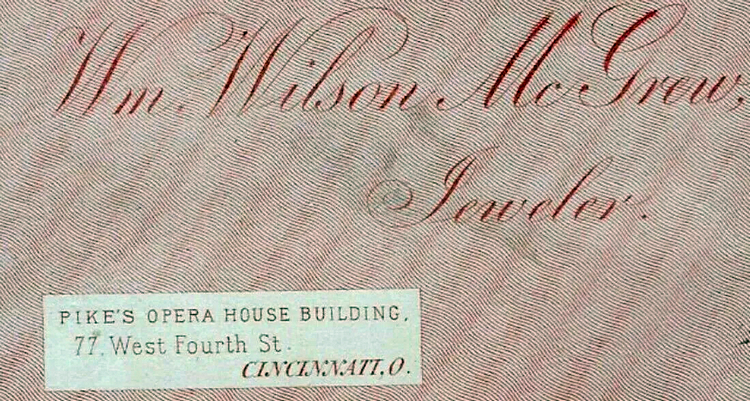 Wm. Wilson McGrew,
Jeweler.
PIKE'S OPERA HOUSE BUILDING,
77. West Fourth St.
CINCINNATI, O.